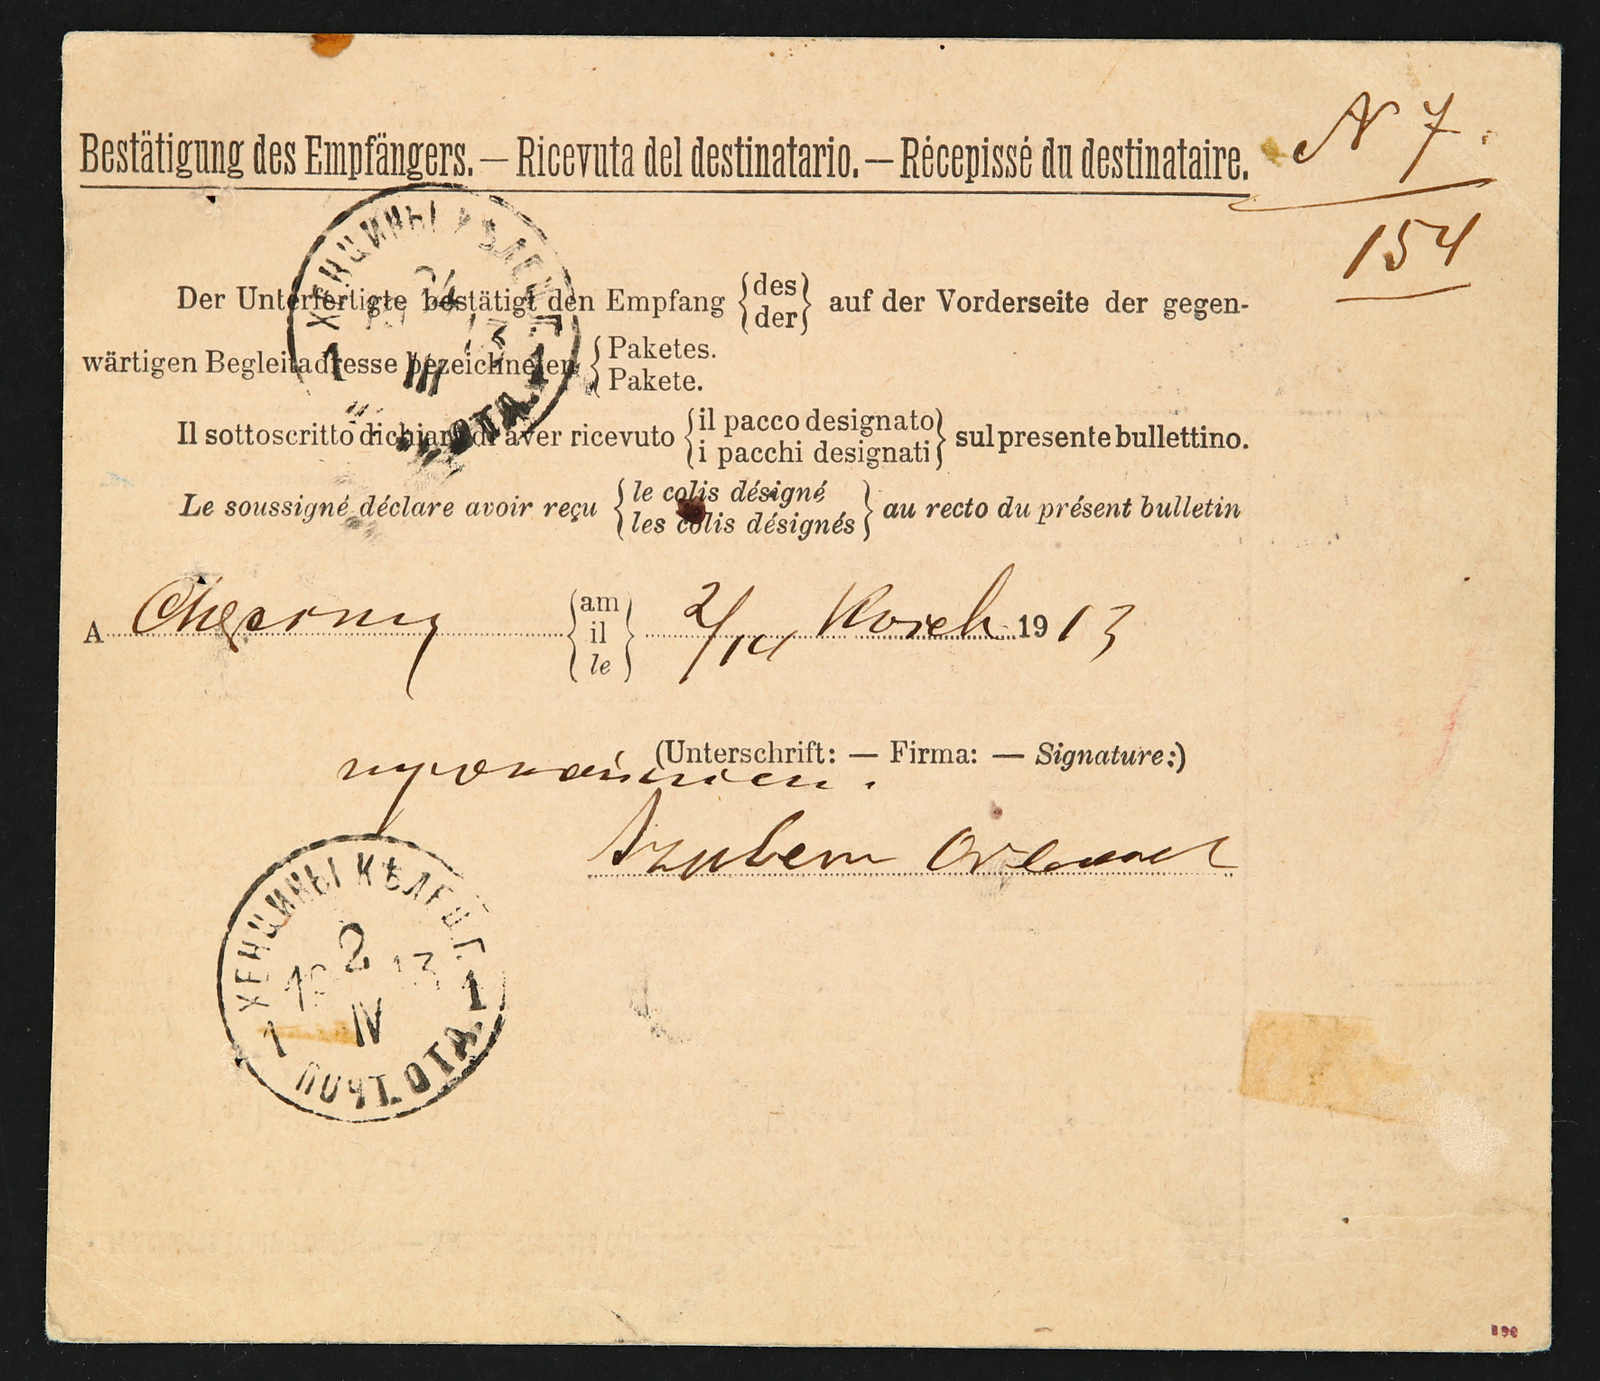 Bestätigung des Empfängers. — Ricevuta del destinatario. — Récepissé du destinataire.
N 7.
154
Der Unterfertigte bestätigt den Empfang {des der} auf der Vorderseite der gegen-
wärtigen Begleitadresse bezeichneten {Paketes. Pakete.
Il sottoscritto dichiara di aver ricevuto {il pacco designato i pacchi designati} sul presente bullettino.
Le soussigné déclare avoir reçu {le colis désigné les colis désignés} au recto du présent bulletin
A {am il le} 2/14 1913
(Unterschrift: — Firma: — Signature:)
ХЕНЩИНЫ КѢЛЕЦ. Г.
1 III 13 1
ПОЧТ. ОТД.
ХЕНЩИНЫ КѢЛЕЦ. Г.
2
13
1 IV 1
ПОЧТ. ОТД.